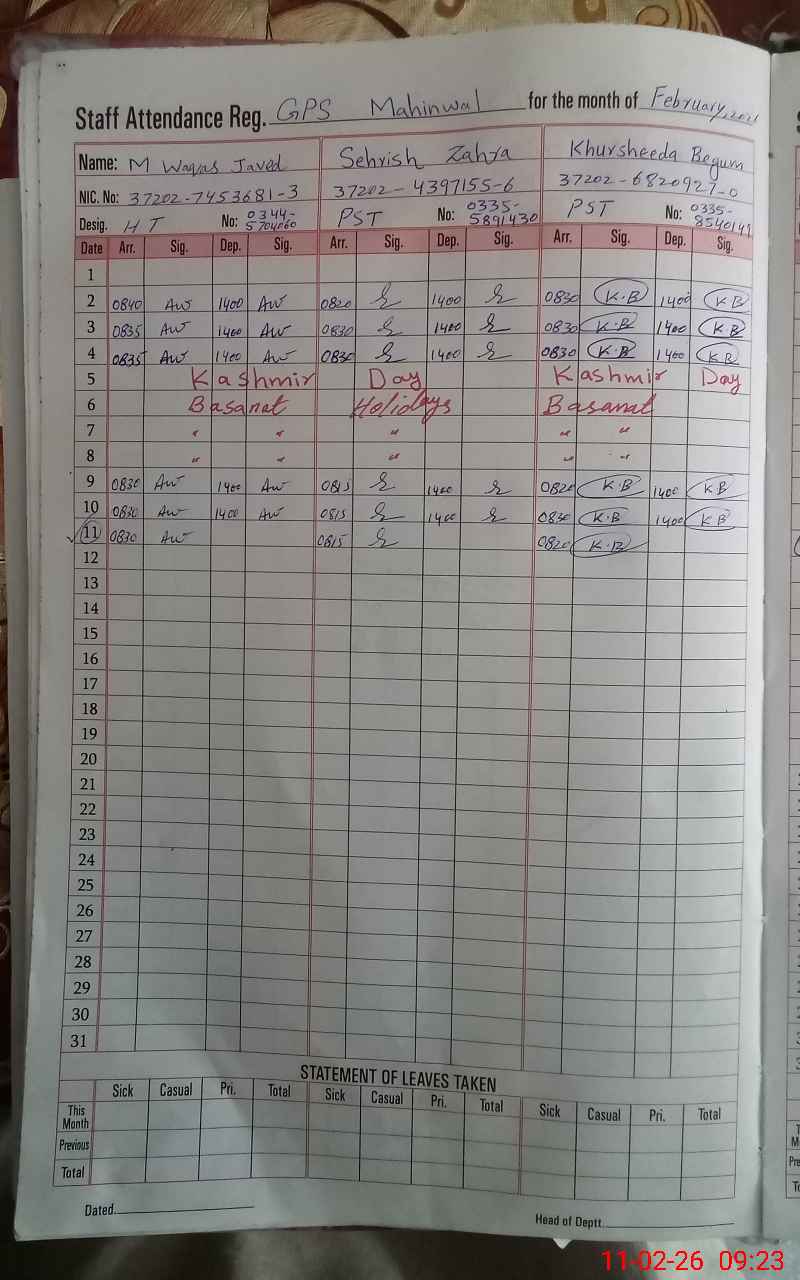 Staff Attendance Reg. GPS Mahinwal for the month of February, 2026
Name: M Waqas Javed Sehrish Zahra Khursheeda Begum
NIC. No: 37202-7453681-3 37202-4397155-6 37202-6820927-0
Desig. HT No: 0344-5704060 PST No: 0335-5891430 PST No: 0335-8540141
Date Arr. Sig. Dep. Sig. Arr. Sig. Dep. Sig. Arr. Sig. Dep. Sig.
1
2 0840 AW 1400 AW 0820 1400 0830 K.B 1400 KB
3 0835 AW 1400 AW 0830 1400 0830 K.B 1400 KB
4 0835 AW 1400 AW 0830 1400 0830 K.B 1400 KB
5 Kashmir Day Kashmir Day
6 Basanat Holidays Basanat
7 " " " " "
8 " " " " "
9 0830 AW 1400 AW 0815 1400 0820 K.B 1400 KB
10 0830 AW 1400 AW 0815 1400 0830 K.B 1400 KB
11 0830 AW 0815 0820 K.B
12
13
14
15
16
17
18
19
20
21
22
23
24
25
26
27
28
29
30
31
STATEMENT OF LEAVES TAKEN
Sick Casual Pri. Total Sick Casual Pri. Total Sick Casual Pri. Total
This Month
Previous
Total
Dated. Head of Deptt.
11-02-26 09:23